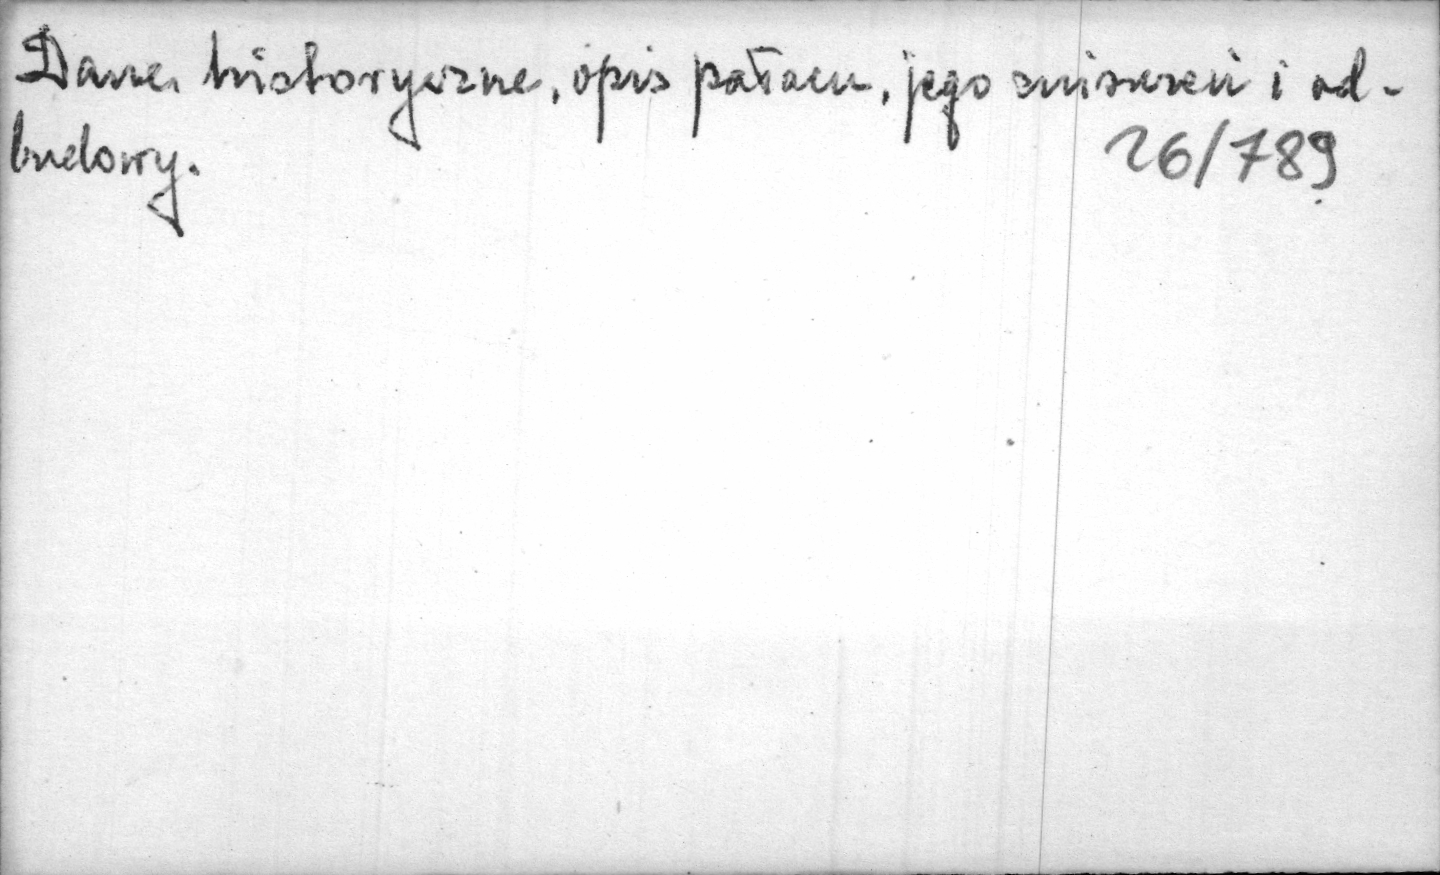 Dane historyczne, opis pałacu, jego zniszczeń i od-
budowy.
26/789